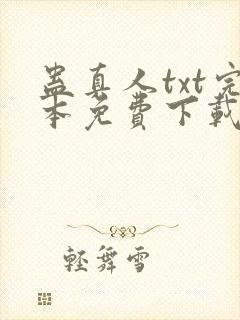 蛊真人txt完
本免費下載
輕舞雪